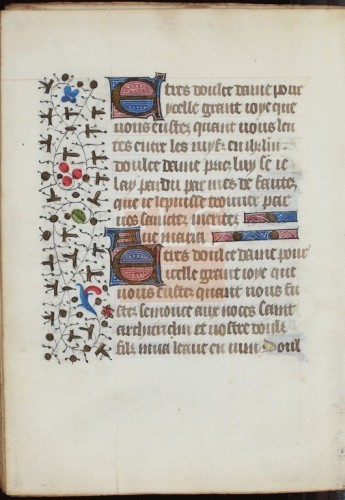 E tres doulce dame pour
ycelle grant ioye que
uous eustes quant uous
entre les
doulce dame priez luy se ie
lay perdu par mes defautes
que ie le puisse trouuer par
uos
Aue maria
E tres doulce dame pour
icelle grant ioye que
uous eustes quant uous fu
stes semonce aux noces saint
archedeclin et uostre doulz
filz mua leaue en uin Doul